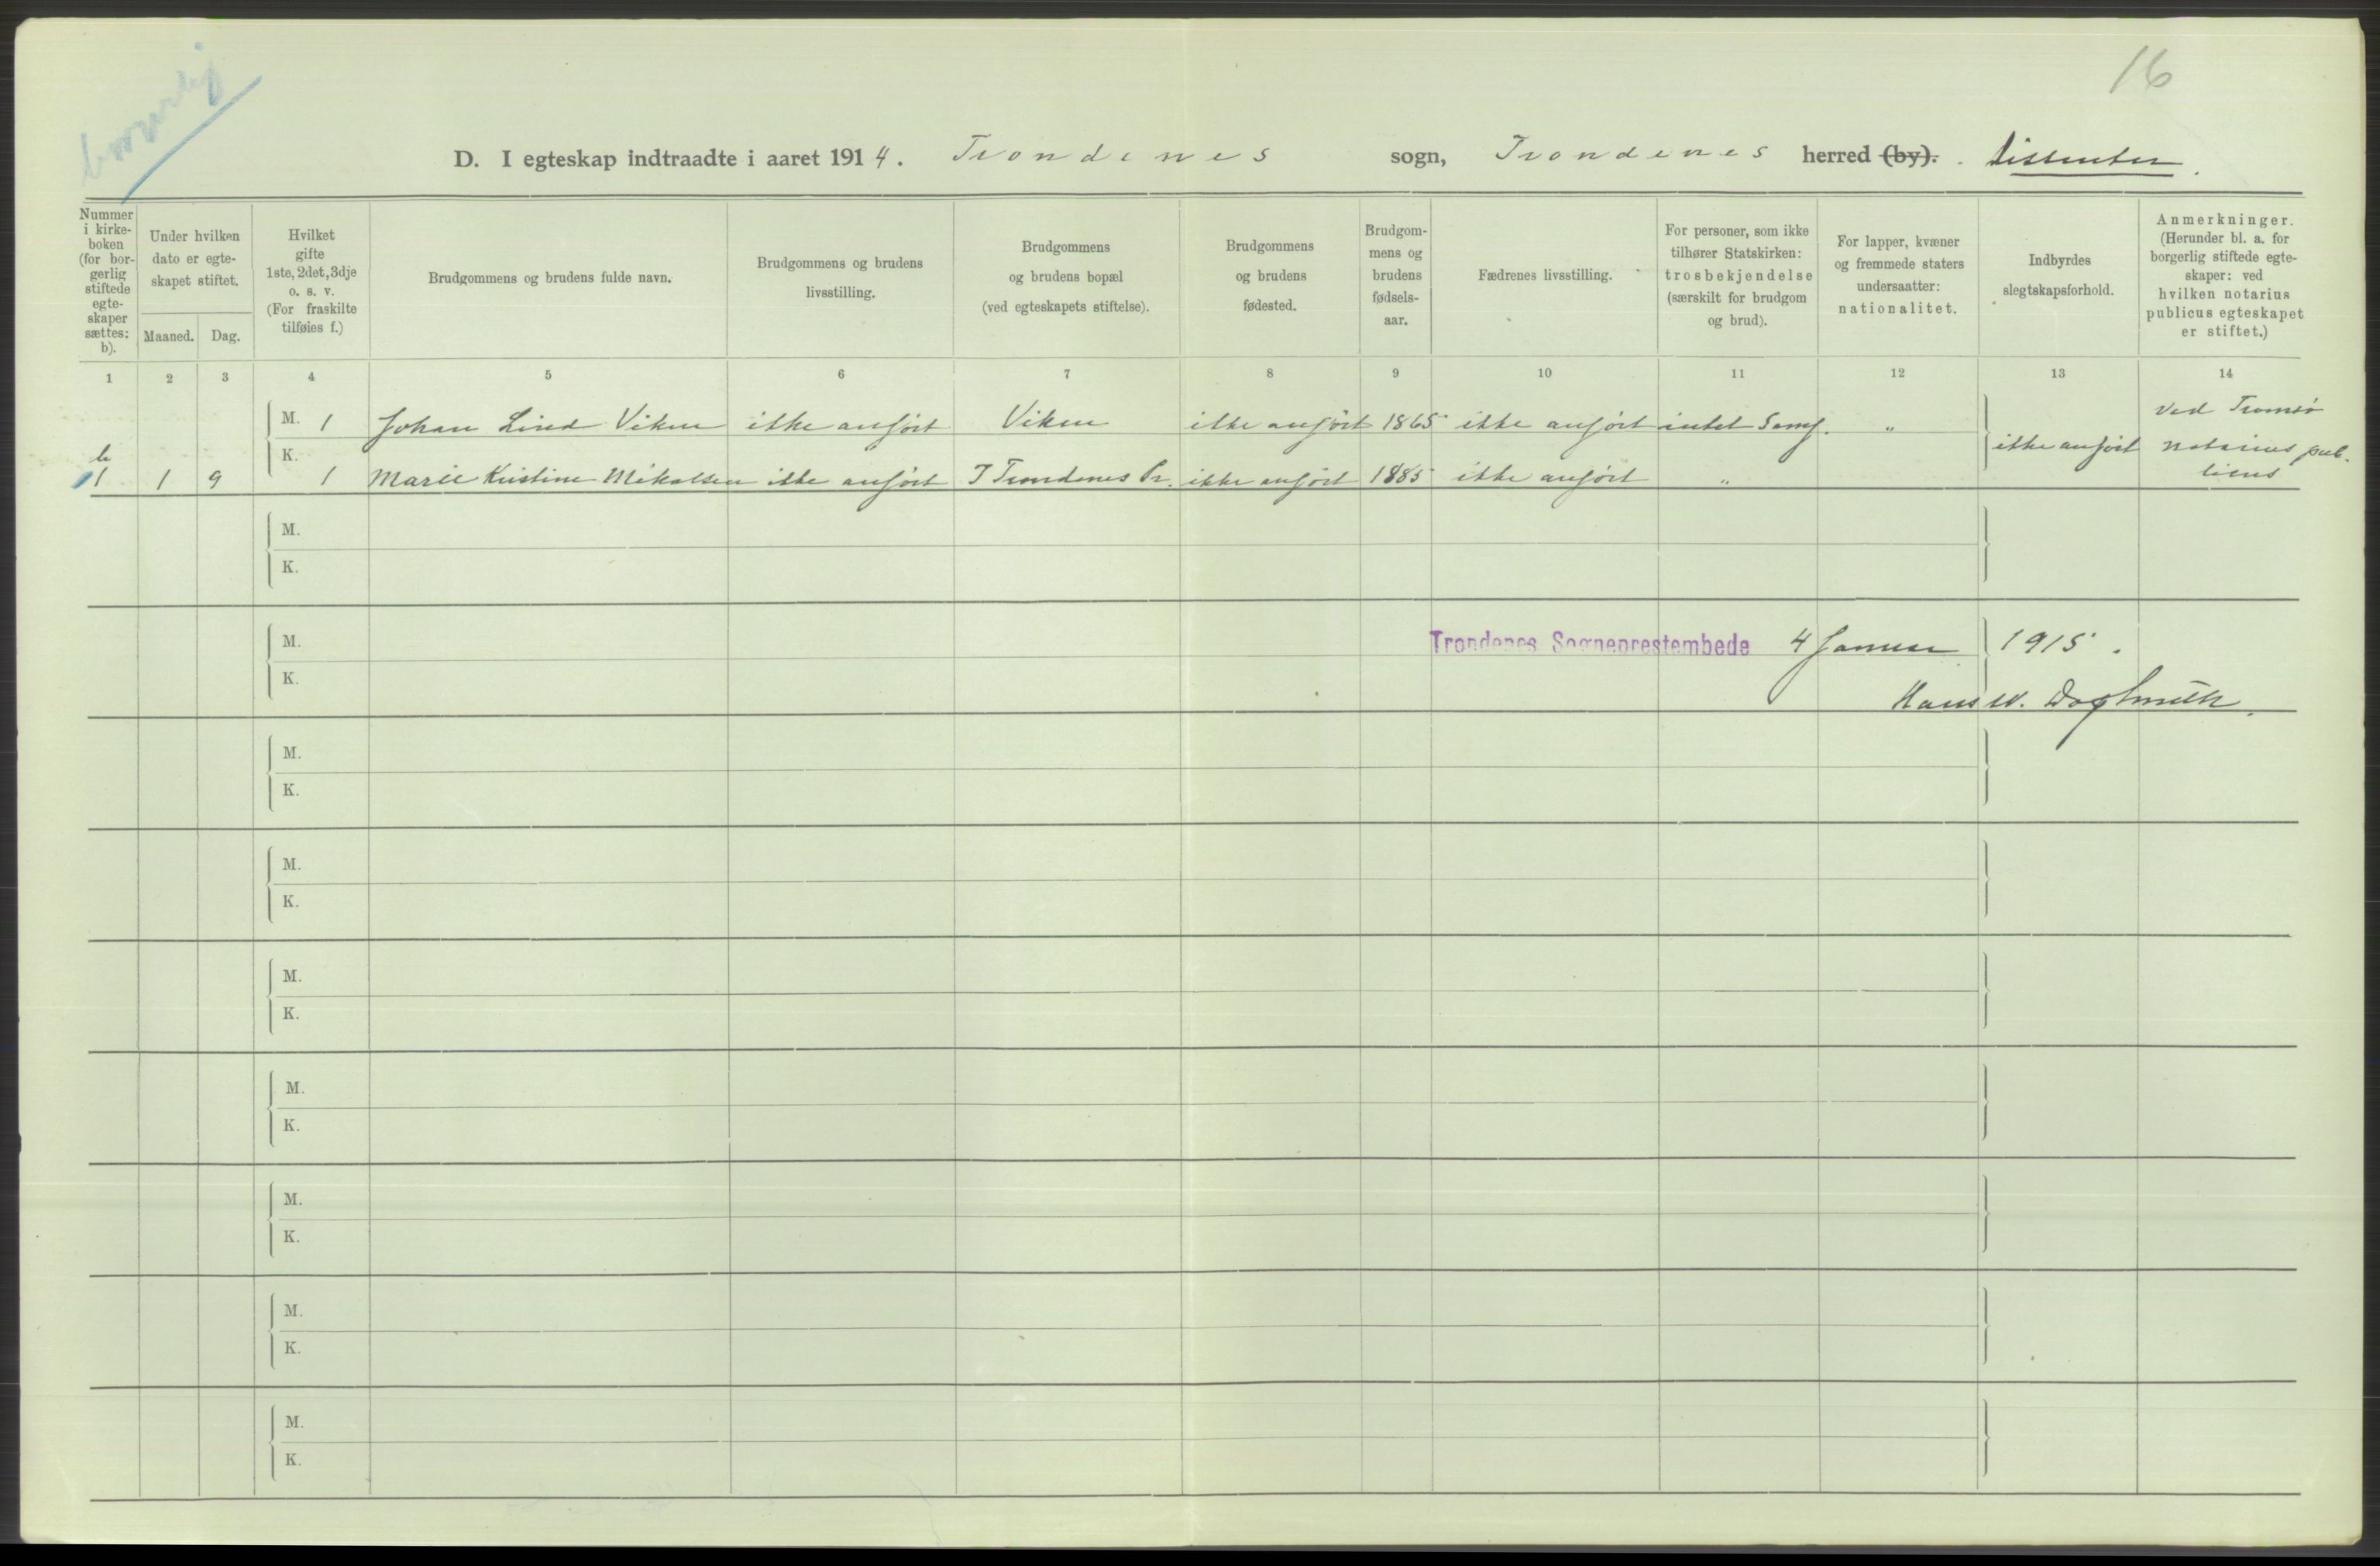 borgerlig
16
D. I egteskap indtraadte i aaret 1914. Trondenes sogn, Trondenes herred (by). Dissenter.
Nummer i kirke-boken (for bor-gerlig stiftede egte-skaper sættes: b).
Under hvilken dato er egte-skapet stiftet.
Maaned. Dag.
Hvilket gifte 1ste, 2det, 3dje o. s. v. (For fraskilte tilføies f.)
Brudgommens og brudens fulde navn.
Brudgommens og brudens livsstilling.
Brudgommens og brudens bopæl (ved egteskapets stiftelse).
Brudgommens og brudens fødested.
Brudgom-mens og brudens fødsels-aar.
Fædrenes livsstilling.
For personer, som ikke tilhører Statskirken: trosbekjendelse (særskilt for brudgom og brud).
For lapper, kvæner og fremmede staters undersaatter: nationalitet.
Indbyrdes slegtskapsforhold.
Anmerkninger. (Herunder bl. a. for borgerlig stiftede egte-skaper: ved hvilken notarius publicus egteskapet er stiftet.)
1 2 3 4 5 6 7 8 9 10 11 12 13 14
M. 1 Johan Lind Viken ikke anført Viken ikke anført 1865 ikke anført intet Samf. "
ikke anført
Ved Tromsø
notarius pub-
licus
b
1 1 9 K. 1 Marie Kristine Mikalsen ikke anført I Trondenes Pr. ikke anført 1885 ikke anført "
M.
K.
M.
Trondenes Sogneprestembede 4 Januar 1915.
K.
Hans
M.
K.
M.
K.
M.
K.
M.
K.
M.
K.
M.
K.
M.
K.